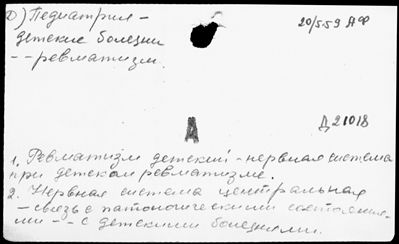 D) Педиатрия -
детские болезни
-- ревматизм.
20/5-59 АФ
А
Д 21018
1. Ревматизм детский - нервная система
при детском ревматизме.
2. Нервная система центральная
- связь с патологическими состояния-
ми -- с детскими болезнями.